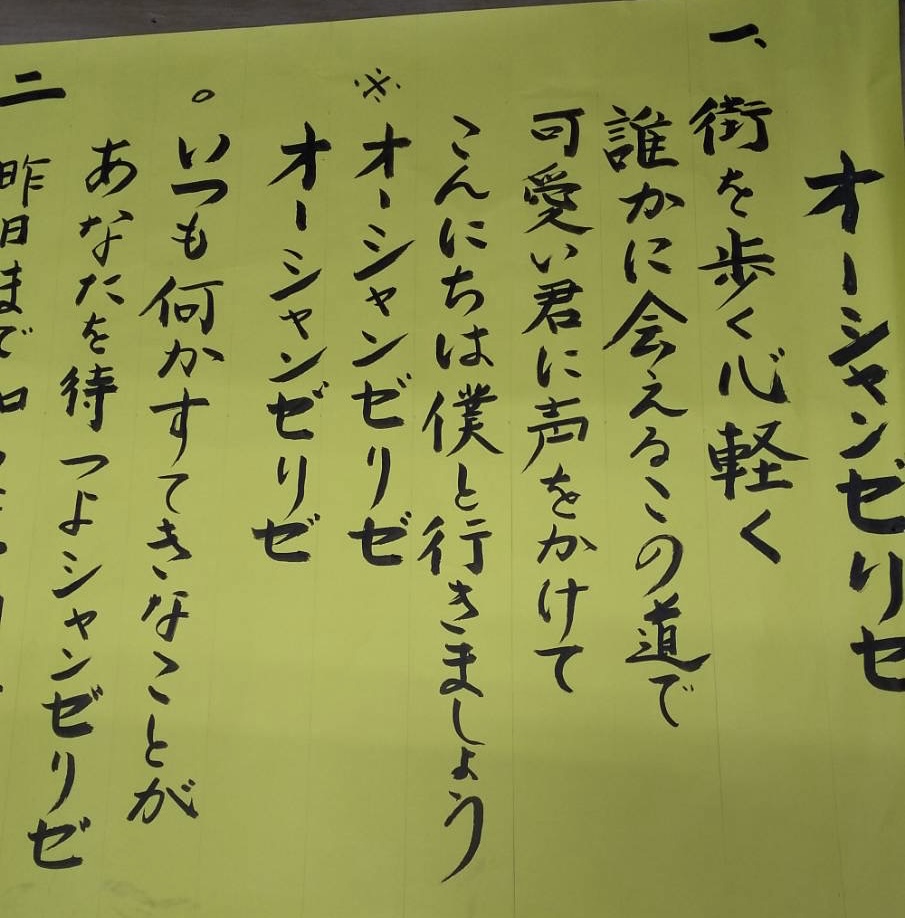 オーシャンゼリゼ
一、街を歩く心軽く
誰かに会えるこの道で
可愛い君に声をかけて
こんにちは僕と行きましょう
※オーシャンゼリゼ
オーシャンゼリゼ
。いつも何かすてきなことが
あなたを待つよシャンゼリゼ
二 昨日まで